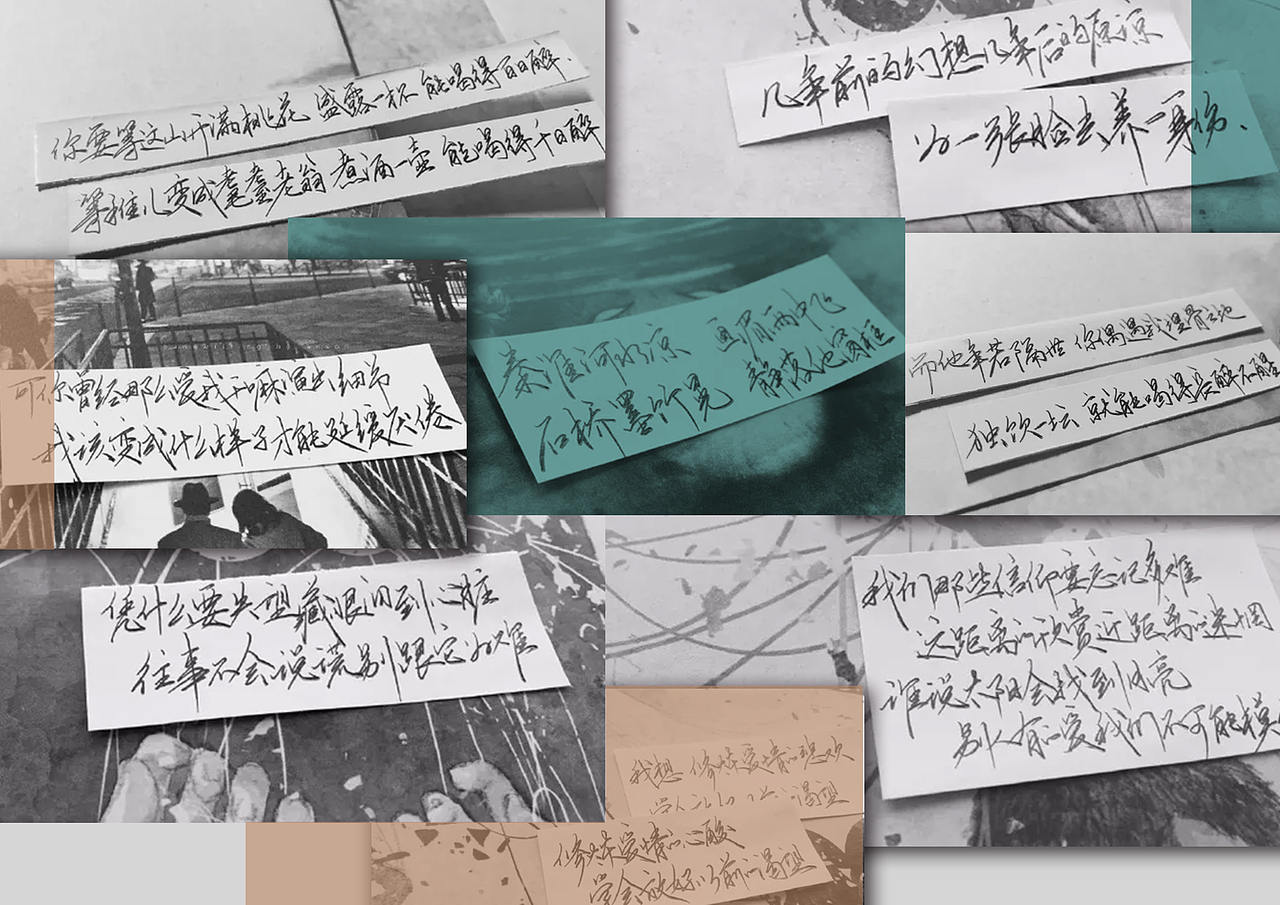 你要等这山开满桃花 盛露一杯 能喝得百日醉.
等稚儿变成耄耋老翁 煮酒一壶 能喝得千日醉
几年前的幻想几年后的原谅
为一张脸去养一身伤、
可你曾经那么爱我干嘛演出细节
我该变成什么样子才能延缓厌倦
秦淮河水凉 画眉雨中飞
石桥墨竹晃 静落他窗框
而他年若隔世 你偶遇我埋骨之地
独饮一坛 就能喝得长醉不醒
凭什么要失望藏眼泪到心脏
往事不会说谎别跟它为难
我们那些信仰要忘记多难
远距离的欣赏近距离的迷惘
谁说太阳会找到月亮
别人有的爱我们不可能模
我想 修炼爱情的悲欢
修炼爱情的心酸
学会放好以前的渴望